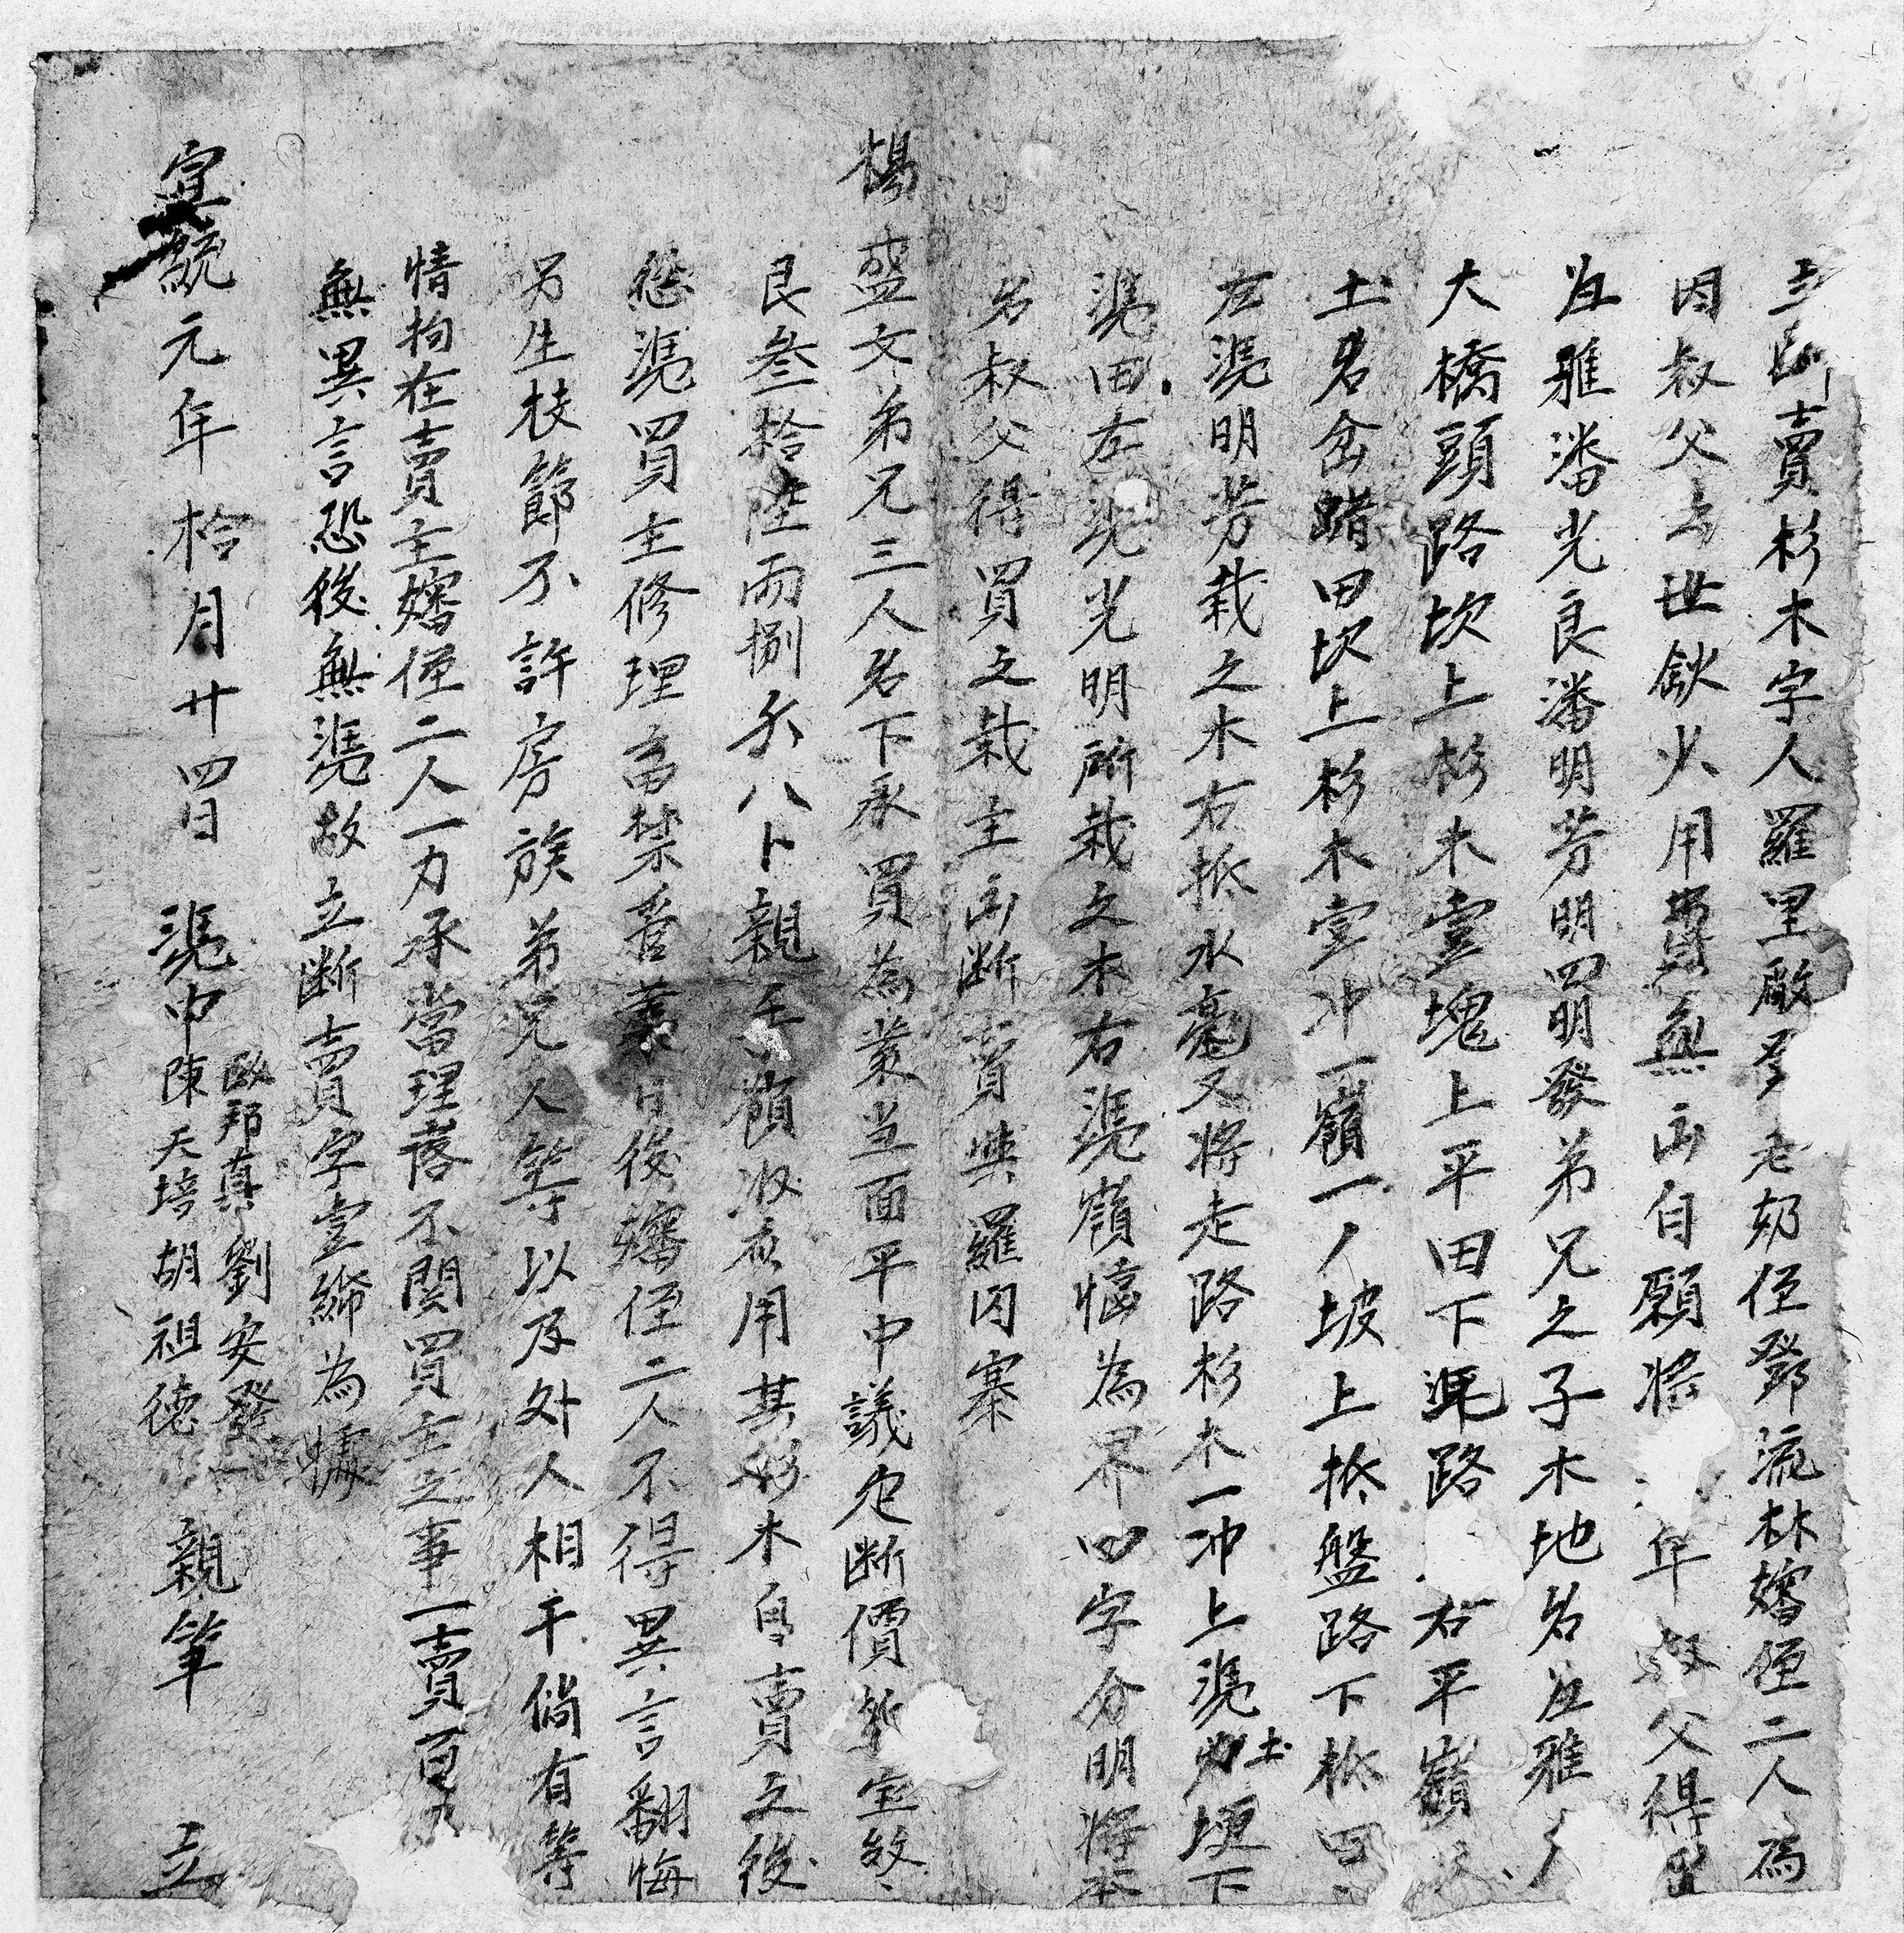 立断賣杉木字人羅里廠 老奶侄鄧流林嬸侄二人為
因叔父去世飲火用費無出自願將 年叔父得買
岩雅潘光良潘明芳明四明發弟兄之子木地名岩雅
大橋頭路坎上杉木壹塊上平田下憑路 右平嶺
土名岔蹡田坎上杉木壹冲一嶺一丿坡上抵盤路下抵田
左憑明芳栽之木右抵水亳又將走路杉木一冲上憑土埂下
憑田左憑光明所栽之木右憑嶺恊為界四字分明將本
名叔父得買之栽主出断賣與羅囚寨
楊盛文弟兄三人名下承買為業当面平中議定断價紋宝
艮叁拾陸兩捌分八卜親手領收應用其杉木自賣之後
恁憑買主修理畜禁管業日後嬸侄二人不得異言翻悔
另生枝節不許房族弟兄人等以及外人相干倘有等
情拘在賣主嬸侄二人一力承當理落不関買主之事一賣百
無異言恐後無憑故立断賣字壹紙為據
憑中 邦真 劉安發
陳天培 胡祖德
宣統元年拾月廿四日 親筆 立